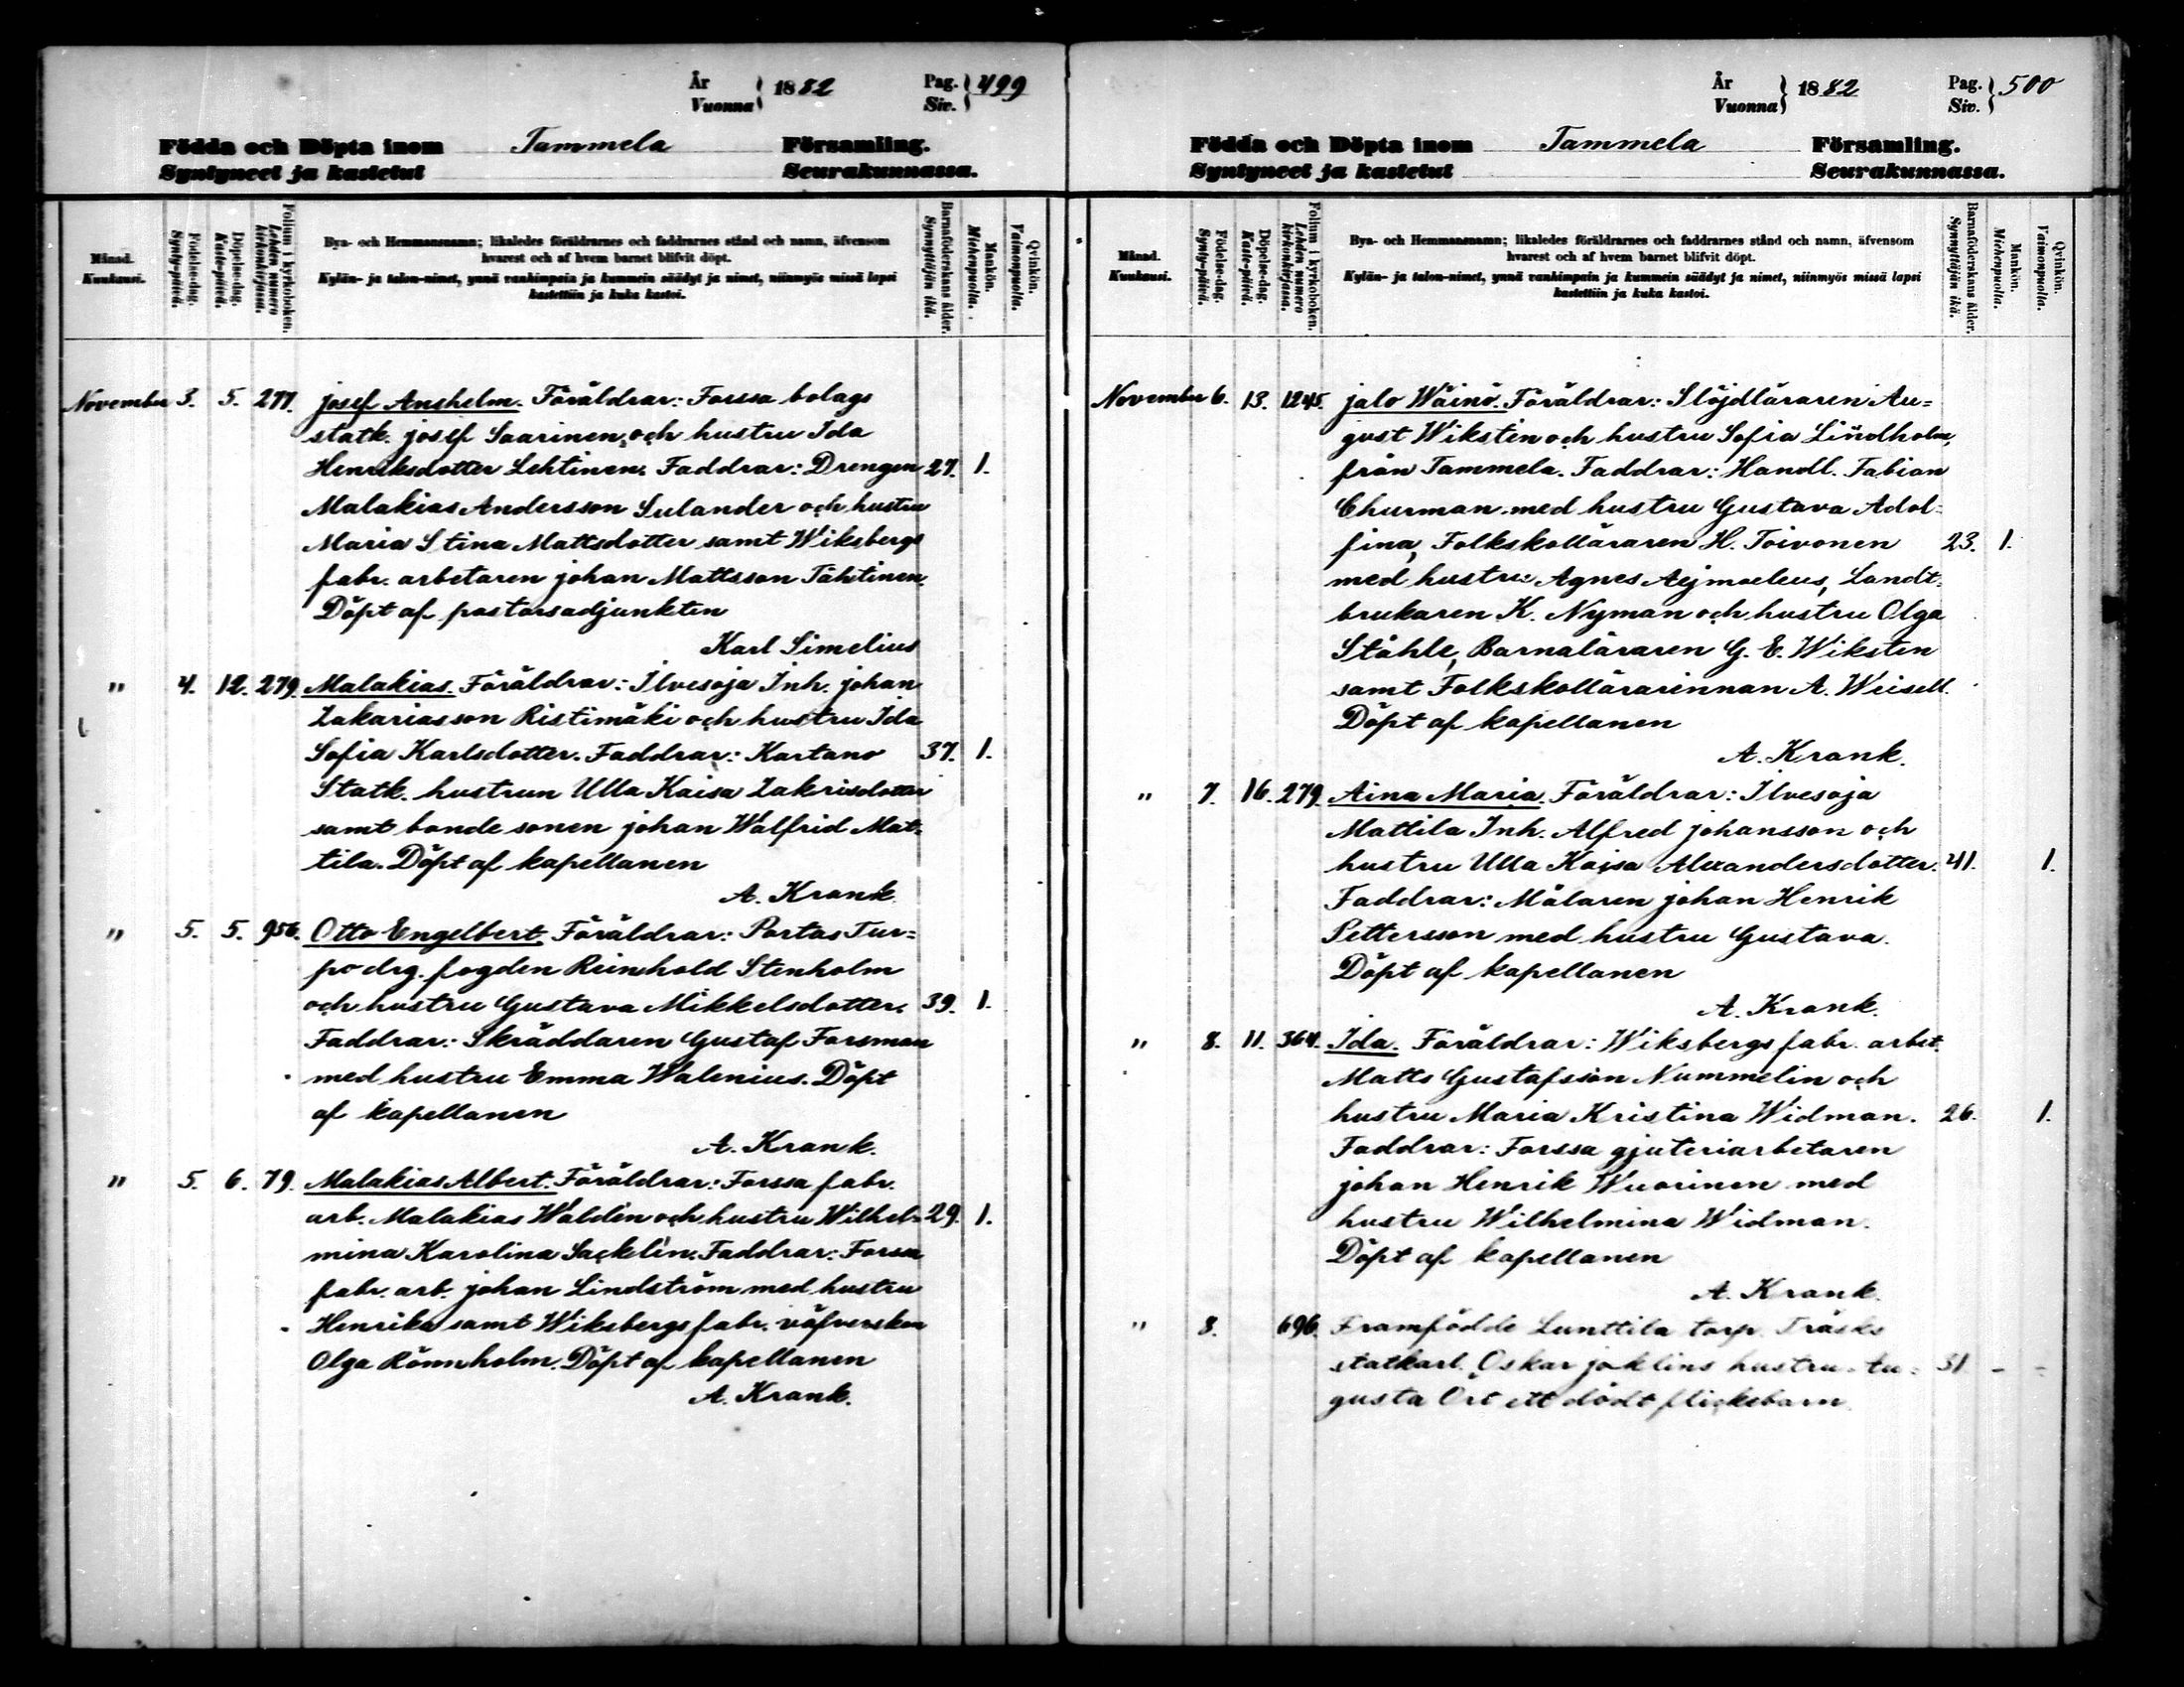 År
Vuonna
1882
Pag.
Siv.
499
Födda och Döpta inom Tammela Församling.
Syntyneet ja kastetut Seurakunnassa.
Månad.
Kuukausi.
Födelse-dag.
Synty-päivä.
Döpelse-dag.
Kaste-päivä.
Folium i kyrkoboken.
Lehden numero kirkonkirjassa.
Bya- och Hemmansnamn; likaledes föräldrarnes och faddrarnes stånd och namn, äfvensom
hvarest och af hvem barnet blifvit döpt.
Kylän- ja talon-nimet, ynnä vanhimpain ja kummein säädyt ja nimet, niinmyös missä lapsi
kastettiin ja kuka kastoi.
Barnaföderskans ålder.
Synnyttäjän ikä.
Mankön.
Miehenpuolta.
Qvinkön.
Vaimonpuolta.
November 3. 5. 277. Josef Anshelm. Föräldrar: Forssa bolags
statk. Josef Saarinen och hustru Ida
Henriksdotter Lehtinen. Faddrar: Drengen 27. 1.
Malakias Andersson Sulander och hustru
Maria Stina Mattsdotter samt Wiksbergs
fabr. arbetaren Johan Mattsson Tähtinen.
Döpt af pastorsadjunkten
Karl Simelius
" 4. 12. 279. Malakias. Föräldrar: Ilvesoja Inh. Johan
Zakariasson Ristimäki och hustru Ida
Sofia Karlsdotter. Faddrar: Kartano 37. 1.
Statk. hustrun Ulla Kaisa Zakrisdotter
samt bonde sonen Johan Walfrid Mat-
tila. Döpt af kapellanen
A. Krank.
" 5. 5. 956. Otto Engelbert. Föräldrar: Portas Tur=
po drg. fogden Reinhold Stenholm
och hustru Gustava Mikkelsdotter. 39. 1.
Faddrar: Skräddaren Gustaf Forsman
med hustru Emma Walenius. Döpt
af kapellanen
A. Krank.
" 5. 6. 79. Malakias Albert. Föräldrar: Forssa fabr.
arb. Malakias Waldén och hustru Wilhel- 29. 1.
mina Karolina Sacklin. Faddrar: Forssa
fabr. arb. Johan Lindström med hustru
Henrika samt Wiksbergs fabr. väfverskan
Olga Rönnholm. Döpt af kapellanen
A. Krank.
År
Vuonna
1882
Pag.
Siv.
500
Födda och Döpta inom Tammela Församling.
Syntyneet ja kastetut Seurakunnassa.
Månad.
Kuukausi.
Födelse-dag.
Synty-päivä.
Döpelse-dag.
Kaste-päivä.
Folium i kyrkoboken.
Lehden numero kirkonkirjassa.
Bya- och Hemmansnamn; likaledes föräldrarnes och faddrarnes stånd och namn, äfvensom
hvarest och af hvem barnet blifvit döpt.
Kylän- ja talon-nimet, ynnä vanhimpain ja kummein säädyt ja nimet, niinmyös missä lapsi
kastettiin ja kuka kastoi.
Barnaföderskans ålder.
Synnyttäjän ikä.
Mankön.
Miehenpuolta.
Qvinkön.
Vaimonpuolta.
November 6. 13. 1245. Jalo Wäinö. Föräldrar: Slöjdläraren Au=
gust Wiksten och hustru Sofia Lindholm,
från Tammela. Faddrar: Handl. Fabian
Churman med hustru Gustava Adol-
fina, Folkskolläraren H. Toivonen 23. 1.
med hustru Agnes Aejmelaeus, Landt-
brukaren K. Nyman och hustru Olga
Ståhle, Barnaläraren G. E. Wiksten
samt Folkskollärarinnan A. Weisell.
Döpt af kapellanen
A. Krank.
" 7. 16. 279. Aina Maria. Föräldrar: Ilvesoja
Mattila Inh. Alfred Johansson och
hustru Ulla Kajsa Alexandersdotter. 41. 1.
Faddrar: Målaren Johan Henrik
Pettersson med hustru Gustava.
Döpt af kapellanen
A. Krank.
" 8. 11. 364. Ida. Föräldrar: Wiksbergs fabr. arbet.
Matts Gustafsson Nummelin och
hustru Maria Kristina Widman. 26. 1.
Faddrar: Forssa gjuteriarbetaren
Johan Henrik Wuorinen med
hustru Wilhelmina Widman.
Döpt af kapellanen
A. Krank.
" 8. 696. Framfödde Lunttila torp. Träsks
statkarl. Oskar Jacklins hustru Au= 31 - -
gusta Ört ett dödt flickebarn.